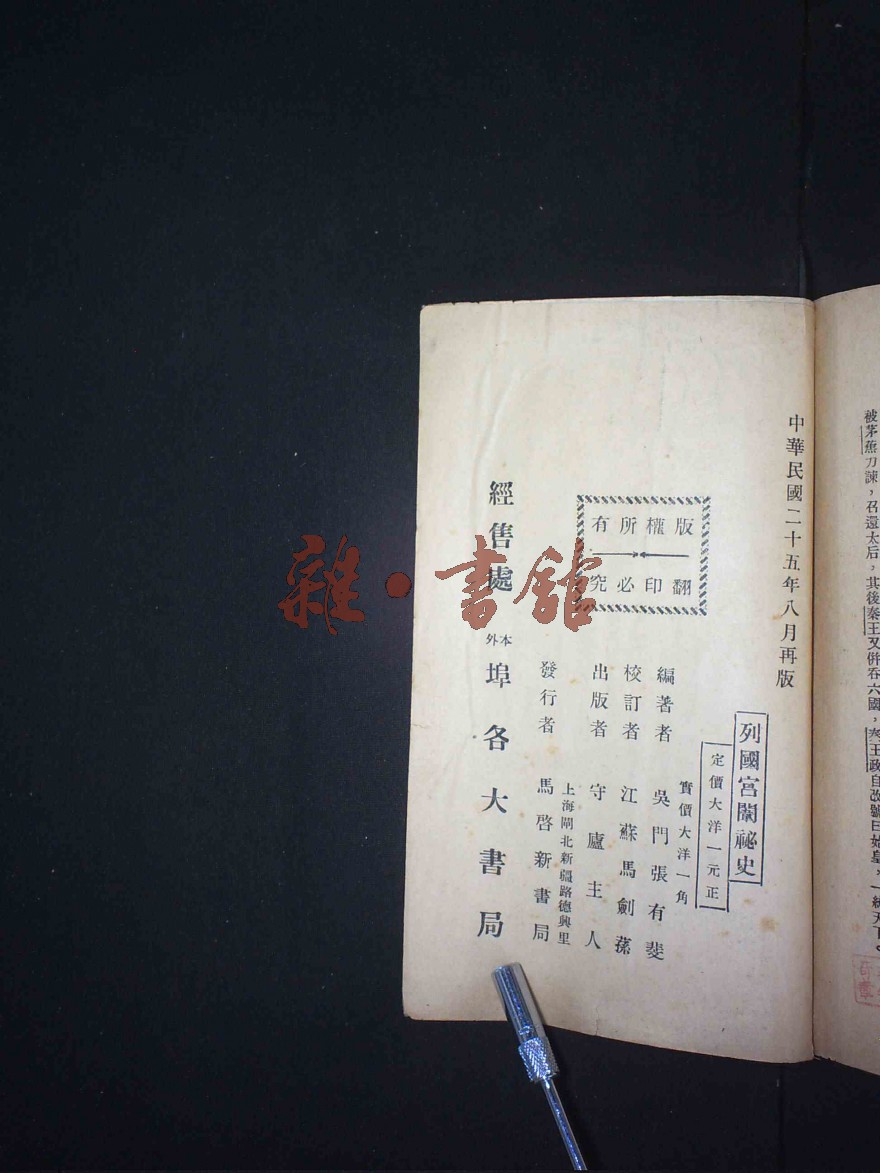 被茅蕉力諫，召還太后，其後秦王又併吞六國，秦王政自改號曰始皇，一統天下。
中華民國二十五年八月再版
列國宮闈祕史
定價大洋一元正
實價大洋一角
版權所有
翻印必究
編著者 吳門張有斐
校訂者 江蘇馬劍蓀
出版者 守廬主人
上海閘北新疆路德興里
發行者 馬啓新書局
經售處 本外埠各大書局
雜·書館